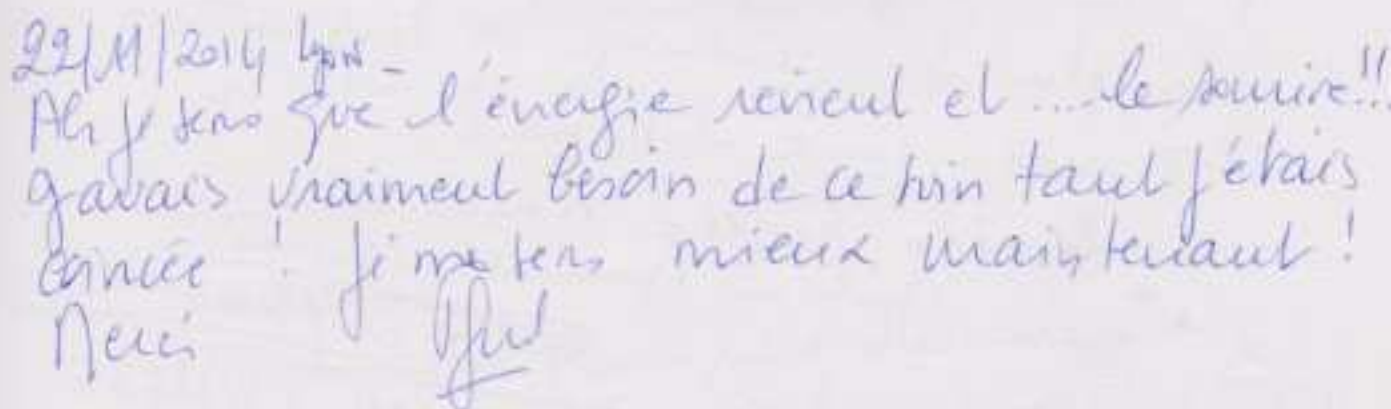 22/11/2014 Lyon -
Ah je sens que l'énergie revient et .... le sourire!!
J'avais vraiment besoin de ce soin tant j'étais
coincée ! Je me sens mieux maintenant !
Merci